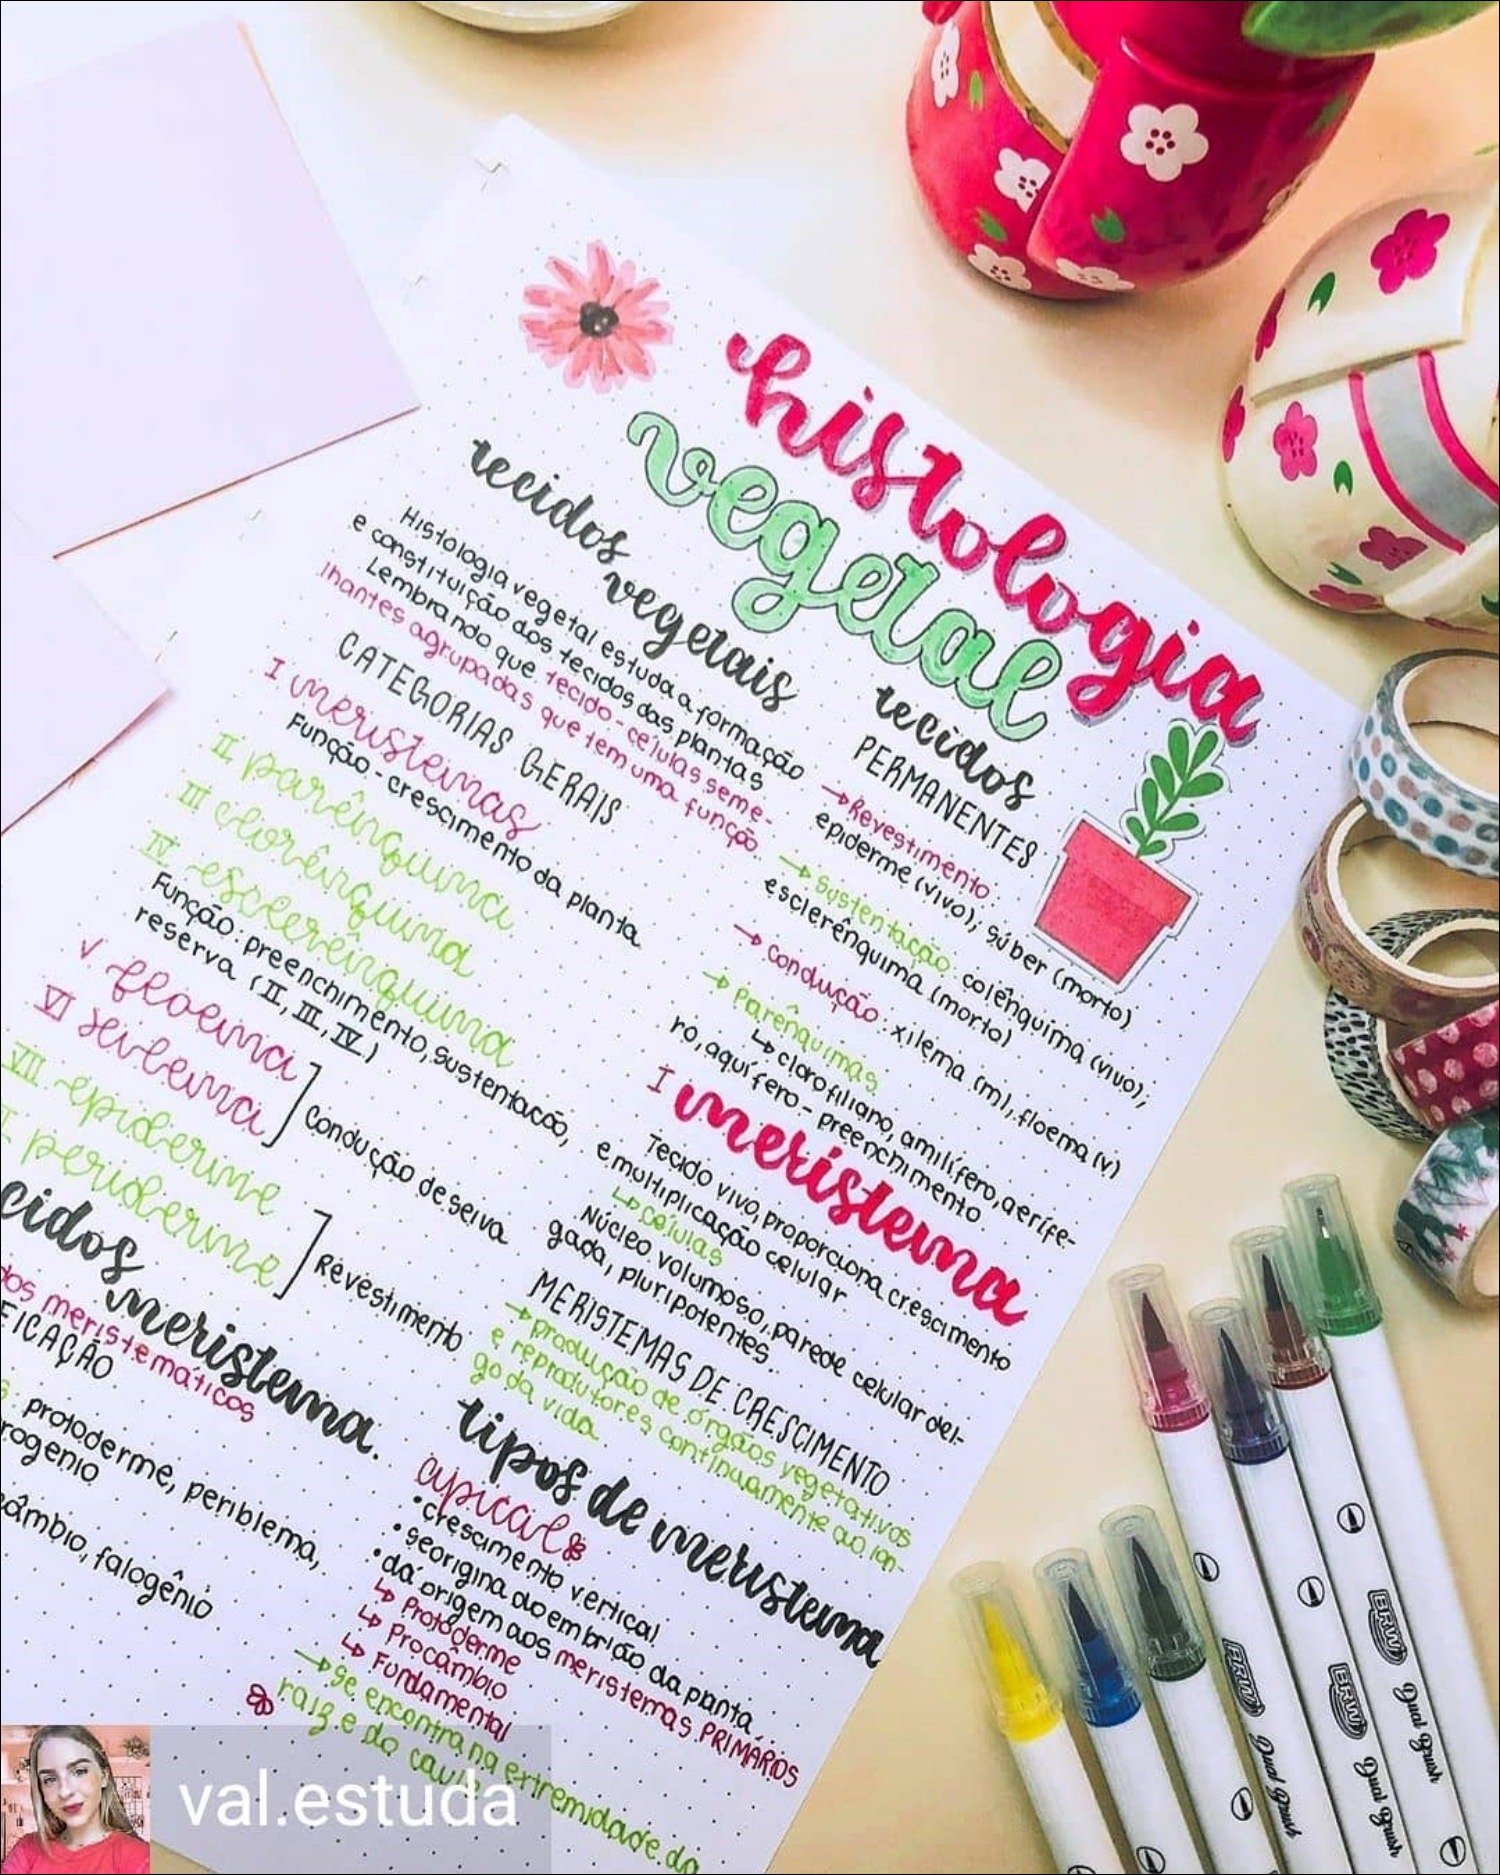 histologia
vegetal
tecidos vegetais
Histologia vegetal estuda a formação
e constituição dos tecidos das plantas
Lembrando que tecido - células seme-
lhantes agrupadas que tem uma função
CATEGORIAS GERAIS
I meristemas
Função - crescimento da planta
II parênquima
III clorênquima
IV esclerênquima
Função: preenchimento, sustentacão,
reserva (II, III, IV)
V floema
VI seilema
Condução de seiva
VII epiderme
periderme
Revestimento
cidos meristema.
dos meristemáticos
FICAÇÃO
protoderme, periblema,
rogenio
câmbio, falogênio
tecidos
PERMANENTES
→Revestimento:
epiderme (vivo); súber (morto)
→Sustentação: colênquima (vivo);
esclerênquima (morto)
→Condução: xilema (m), floema (v)
→Parênquimas
↳clorofiliano, amilífero, aerífe-
ro, aquífero - preenchimento
I meristema
Tecido vivo, proporciona crescimento
e multiplicação celular
↳células
Núcleo volumoso, parede celular del-
gada, pluripotentes
MERISTEMAS DE CRESCIMENTO
→produção de órgãos vegetativos
e reprodutores continuamente ao lon-
go da vida
tipos de meristema
apical
•crescimento vertical
•se origina do embrião da panta
•dá origem aos meristemas PRIMÁRIOS
↳ Protoderme
↳ Procâmbio
↳ Fundamental
→Se encontra na extremidade da
raiz e do caule
val.estuda
BRW Dual Brush
BRW Dual Brush
BRW Dual Brush